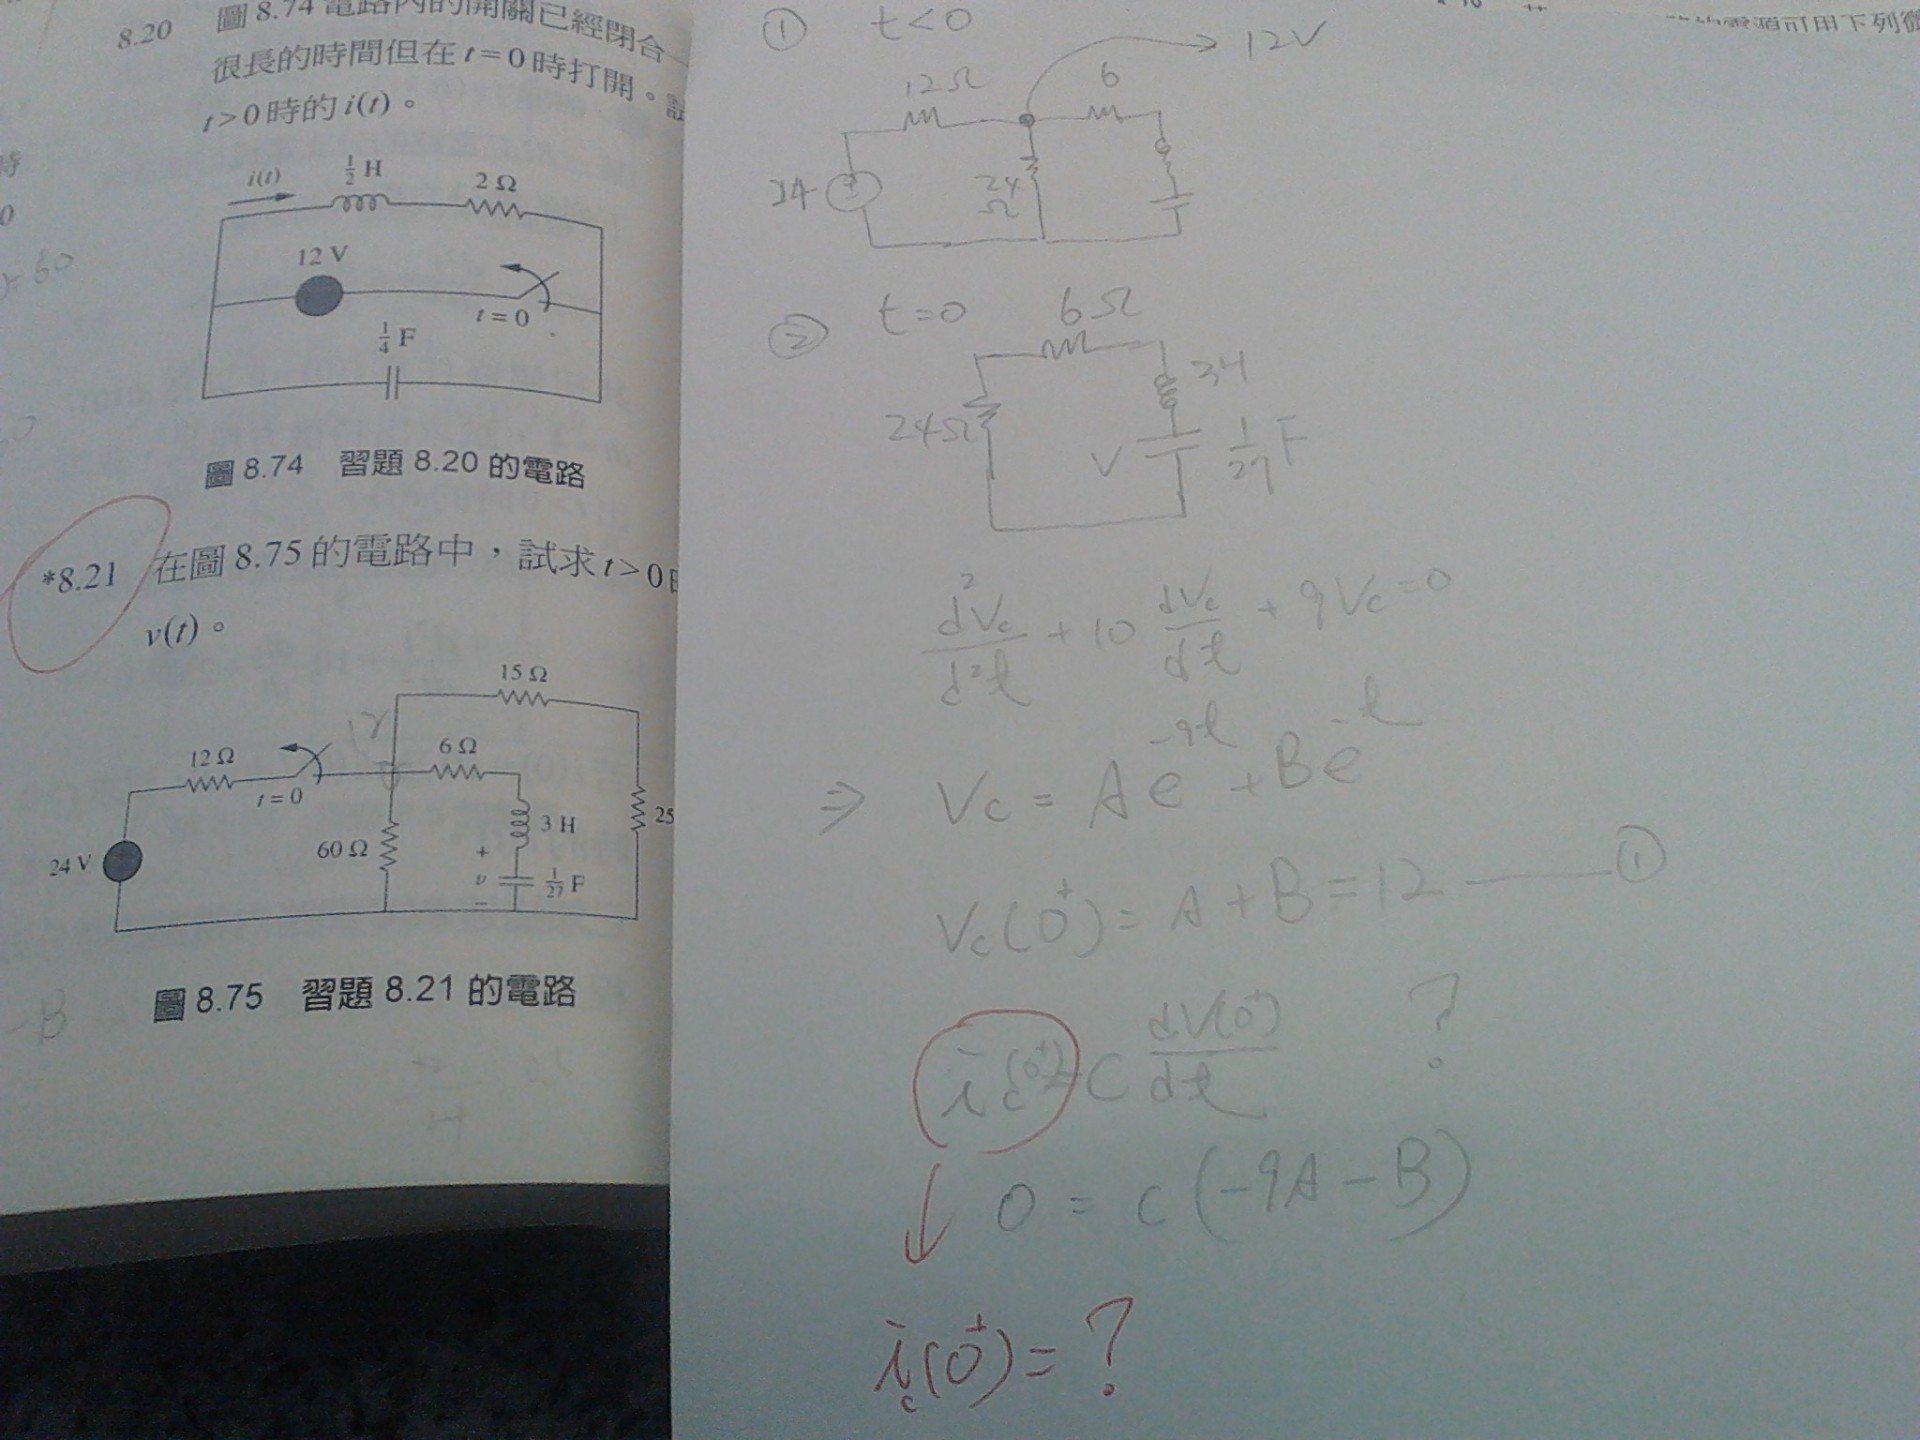 8.20 圖 8.74 電路內的開關已經閉合一
很長的時間但在 t=0 時打開。試
t>0 時的 i(t)。
i(t)
1/2 H
2 Ω
12 V
t=0
1/4 F
圖 8.74 習題 8.20 的電路
*8.21 在圖 8.75 的電路中，試求 t>0
v(t)。
15 Ω
12
12 Ω
6 Ω
t=0
3 H
25
60 Ω
24 V
+
v
1/27 F
−
圖 8.75 習題 8.21 的電路
=60
-B
① t<0
12V
12Ω
6
24
24
Ω
② t=0
6Ω
3H
24Ω
V
1/27 F
d²Vc/d²t + 10 dVc/dt + 9Vc=0
⇒ Vc = Ae^-9t + Be^-t
Vc(0+) = A+B=12 ——①
ic(0+)=C dV(0+)/dt ?
0 = C(-9A-B)
ic(0+)=?
可用下列微